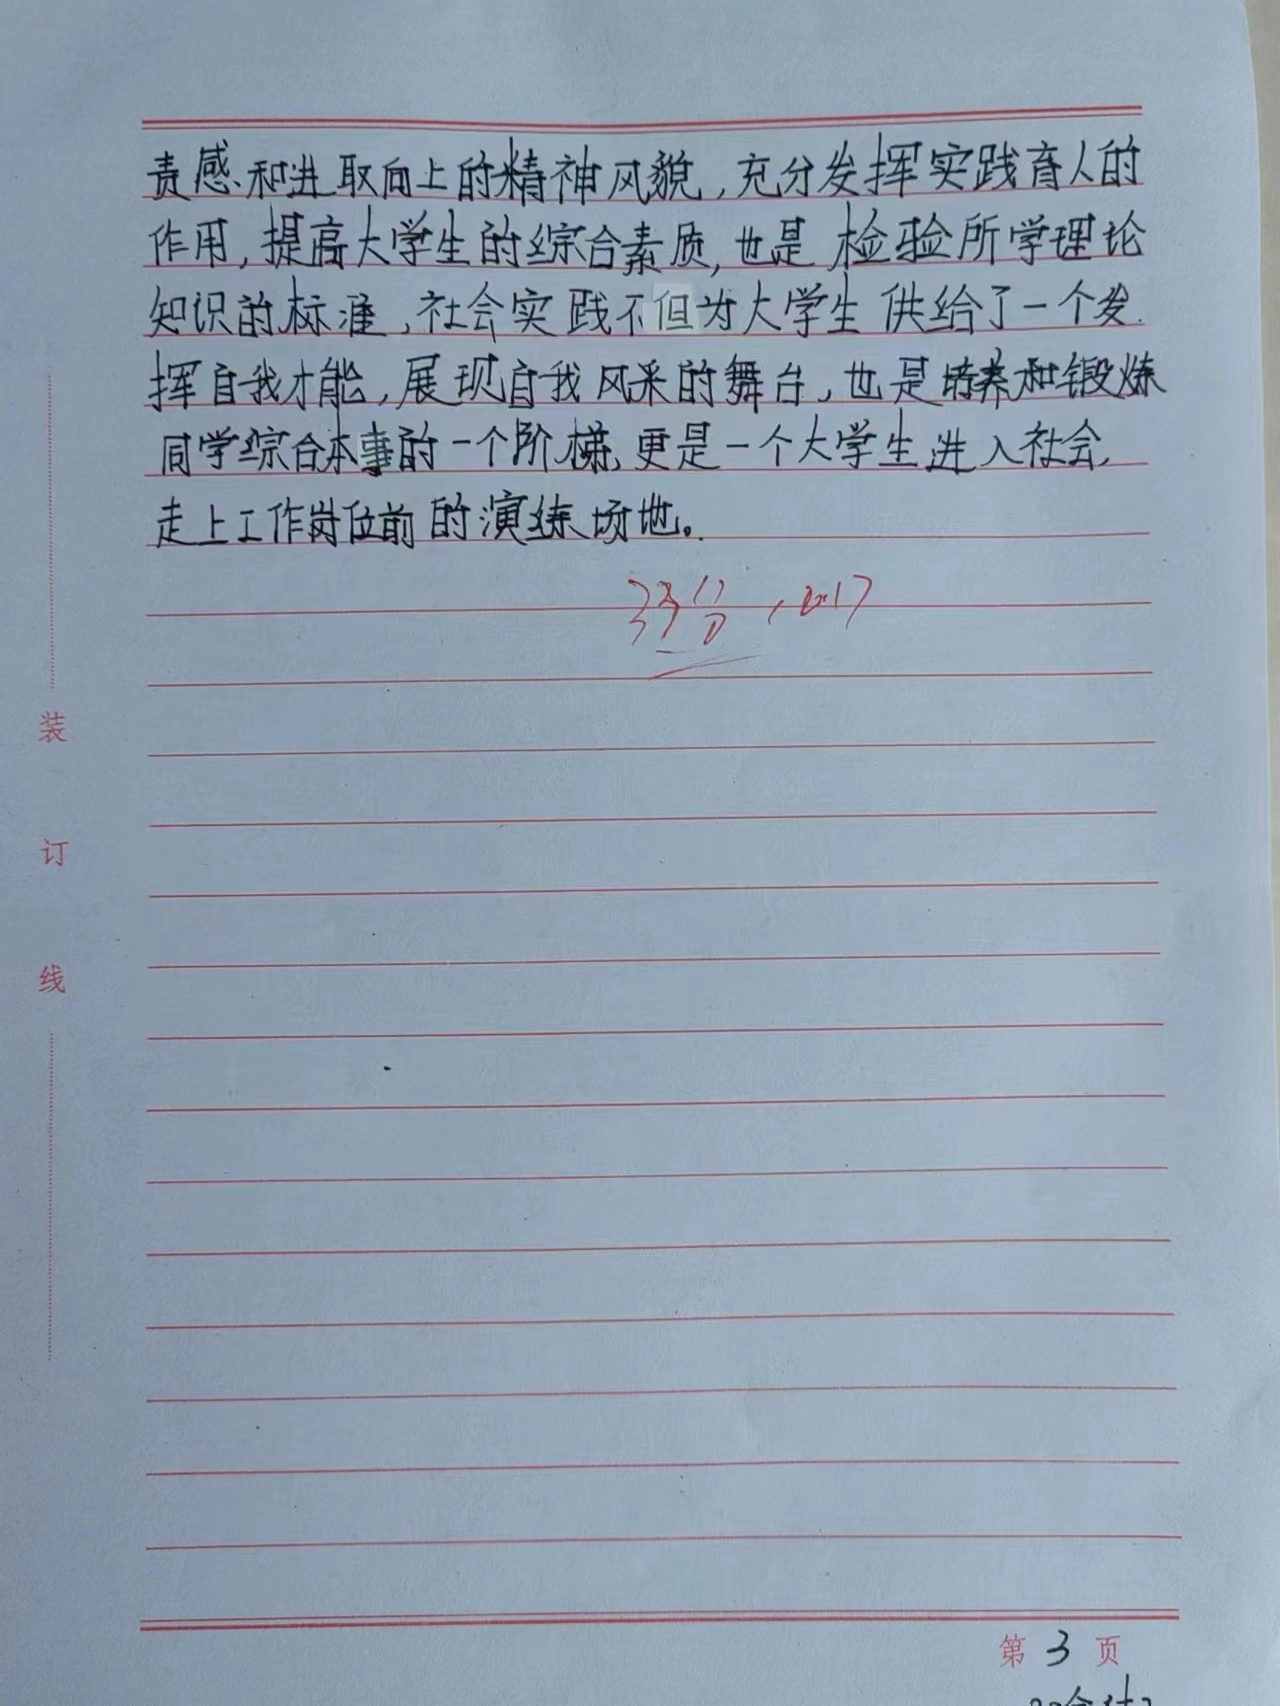 责感和进取向上的精神风貌，充分发挥实践育人的
作用，提高大学生的综合素质，也是检验所学理论
知识的标准，社会实践不但为大学生供给了一个发
挥自我才能，展现自我风采的舞台，也是培养和锻炼
同学综合本事的一个阶梯，更是一个大学生进入社会，
走上工作岗位前的演练场地。
装
订
线
第 3 页